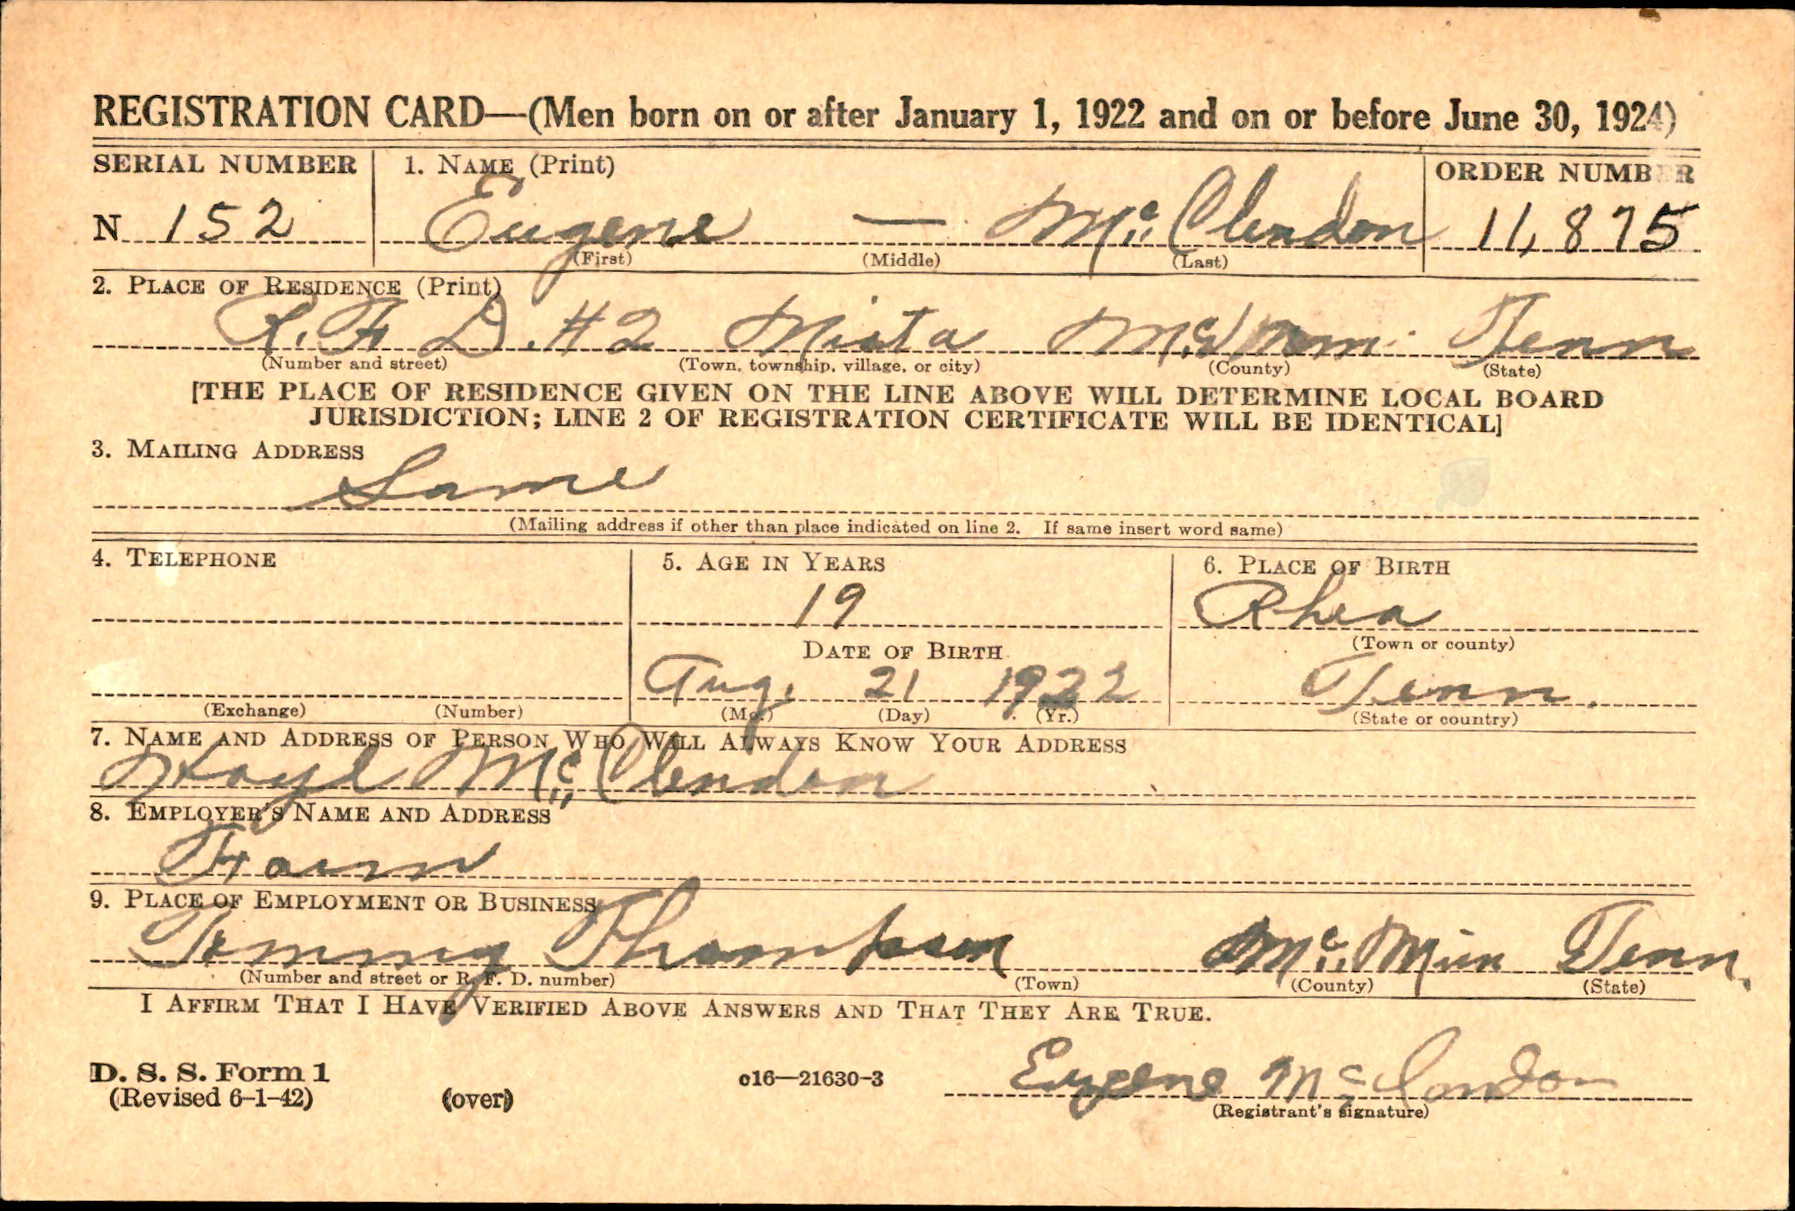 REGISTRATION CARD—(Men born on or after January 1, 1922 and on or before June 30, 1924)
SERIAL NUMBER 1. NAME (Print) ORDER NUMBER
N 152 Eugene — Mc Clendon 11,875
(First) (Middle) (Last)
2. PLACE OF RESIDENCE (Print)
R. F. D. #2 Niota McMinn Tenn
(Number and street) (Town, township, village, or city) (County) (State)
[THE PLACE OF RESIDENCE GIVEN ON THE LINE ABOVE WILL DETERMINE LOCAL BOARD
JURISDICTION; LINE 2 OF REGISTRATION CERTIFICATE WILL BE IDENTICAL]
3. MAILING ADDRESS
Same
(Mailing address if other than place indicated on line 2. If same insert word same)
4. TELEPHONE 5. AGE IN YEARS 6. PLACE OF BIRTH
19 Rhea
DATE OF BIRTH (Town or county)
Aug. 21 1922 Tenn.
(Exchange) (Number) (Mo.) (Day) (Yr.) (State or country)
7. NAME AND ADDRESS OF PERSON WHO WILL ALWAYS KNOW YOUR ADDRESS
Hoyl Mc Clendon
8. EMPLOYER'S NAME AND ADDRESS
Farm
9. PLACE OF EMPLOYMENT OR BUSINESS
Tommy Thompson Mc Minn Tenn.
(Number and street or R. F. D. number) (Town) (County) (State)
I AFFIRM THAT I HAVE VERIFIED ABOVE ANSWERS AND THAT THEY ARE TRUE.
D. S. S. Form 1
(Revised 6-1-42) (over) c16—21630-3 Eugene Mc Clendon
(Registrant's signature)